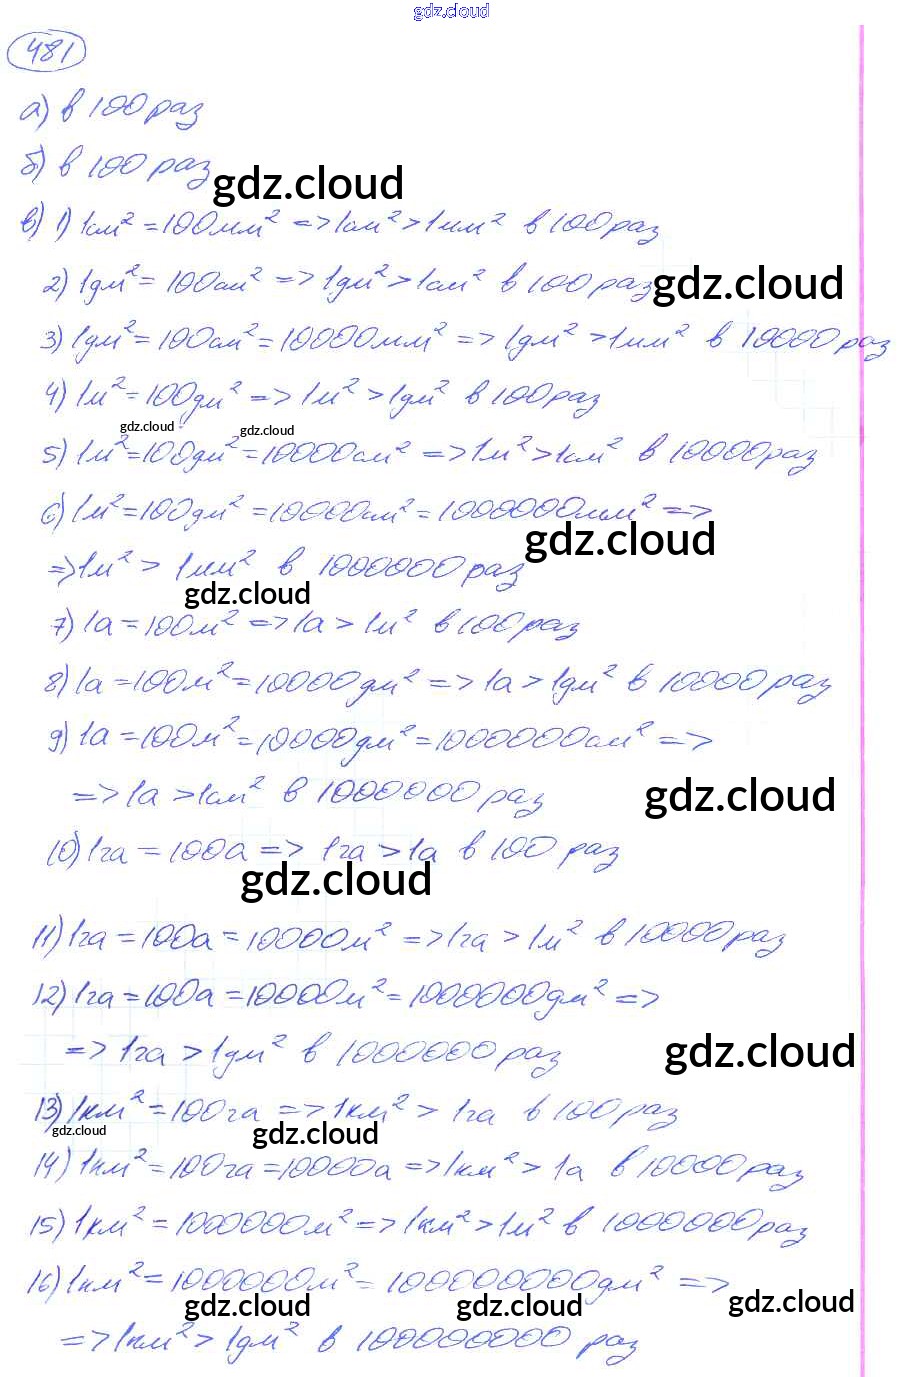 gdz.cloud
481
а) в 100 раз
б) в 100 раз
gdz.cloud
в) 1) 1см² = 100мм² => 1см² > 1мм² в 100 раз
2) 1дм² = 100см² => 1дм² > 1см² в 100 раз
gdz.cloud
3) 1дм² = 100см² = 10000мм² => 1дм² > 1мм² в 10000 раз
4) 1м² = 100дм² => 1м² > 1дм² в 100 раз
gdz.cloud gdz.cloud
5) 1м² = 100дм² = 10000см² => 1м² > 1см² в 10000 раз
6) 1м² = 100дм² = 10000см² = 1000000мм² =>
gdz.cloud
=> 1м² > 1мм² в 1000000 раз
gdz.cloud
7) 1а = 100м² => 1а > 1м² в 100 раз
8) 1а = 100м² = 10000дм² => 1а > 1дм² в 10000 раз
9) 1а = 100м² = 10000дм² = 1000000см² =>
=> 1а > 1см² в 1000000 раз
gdz.cloud
10) 1га = 100а => 1га > 1а в 100 раз
gdz.cloud
11) 1га = 100а = 10000м² => 1га > 1м² в 10000 раз
12) 1га = 100а = 10000м² = 1000000дм² =>
=> 1га > 1дм² в 1000000 раз
gdz.cloud
13) 1км² = 100га => 1км² > 1га в 100 раз
gdz.cloud gdz.cloud
14) 1км² = 100га = 10000а => 1км² > 1а в 10000 раз
15) 1км² = 1000000м² => 1км² > 1м² в 1000000 раз
16) 1км² = 1000000м² = 100000000дм² =>
gdz.cloud gdz.cloud gdz.cloud
=> 1км² > 1дм² в 100000000 раз